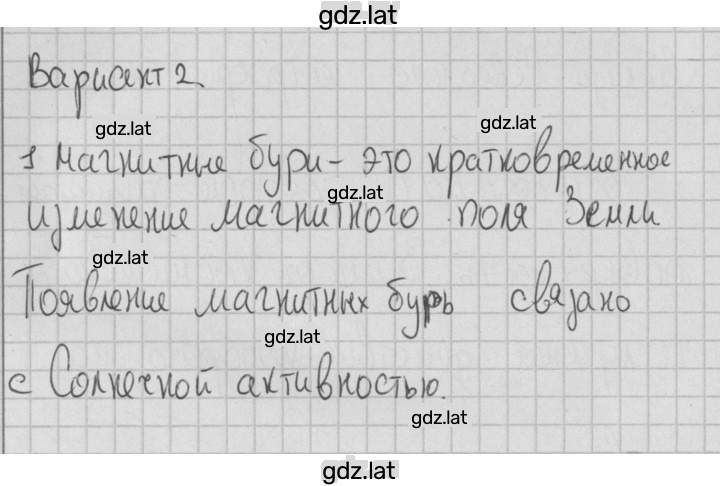 gdz.lat
Вариант 2
gdz.lat gdz.lat
1 Магнитные бури - это кратковременное
gdz.lat
изменение магнитного поля Земли
gdz.lat
Появление магнитных бурь связано
gdz.lat
с Солнечной активностью.
gdz.lat
gdz.lat